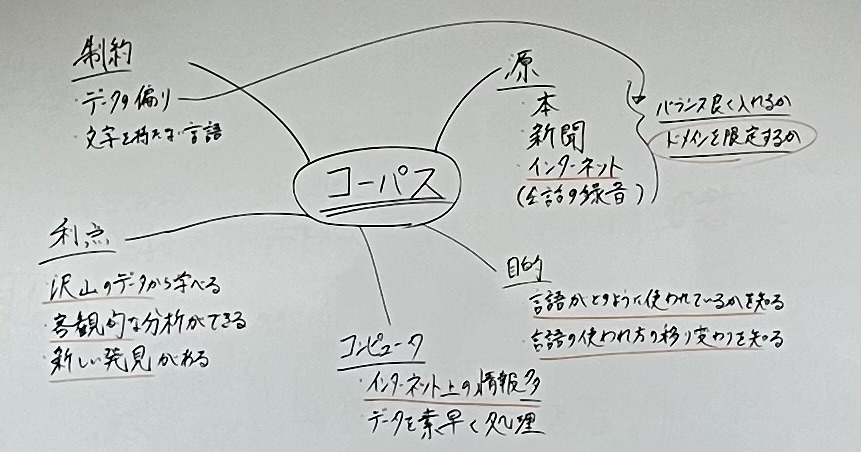 制約
・データの偏り
・文字を持たない言語
源
・本
・新聞
・インターネット
(会話の録音)
バランス良く入れるか
ドメインを限定するか
コーパス
利点
・沢山のデータから学べる
・客観的な分析ができる
・新しい発見がある
目的
・言語がどのように使われているかを知る
・言語の使われ方の移り変わりを知る
コンピュータ
・インターネット上の情報多
・データを素早く処理